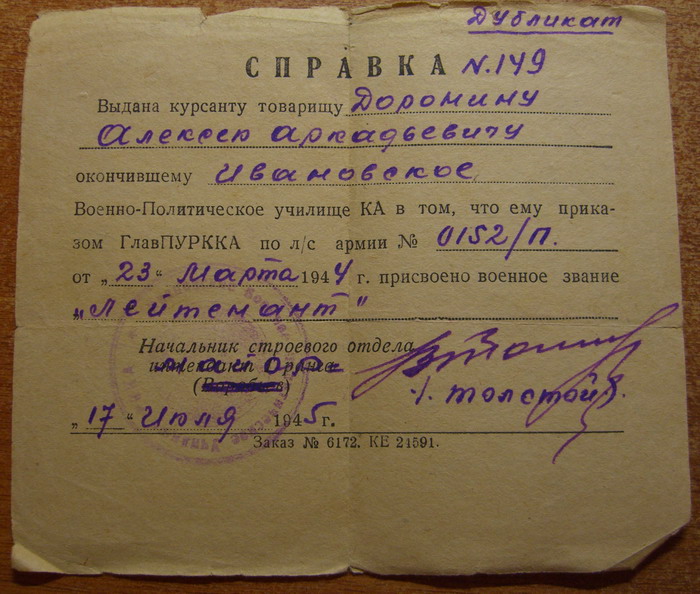 Дубликат
СПРАВКА N.149
Выдана курсанту товарищу Доронину
Алексею Аркадьевичу
окончившему Ивановское
Военно-Политическое училище КА в том, что ему прика-
зом ГлавПУРККА по л/с армии № 0152/п.
от „23“ Марта 1944 г. присвоено военное звание
„Лейтенант"
Начальник строевого отдела
майор
/. Толстой/.
„17“ Июля 1945 г.
Заказ № 6172. КЕ 24591.